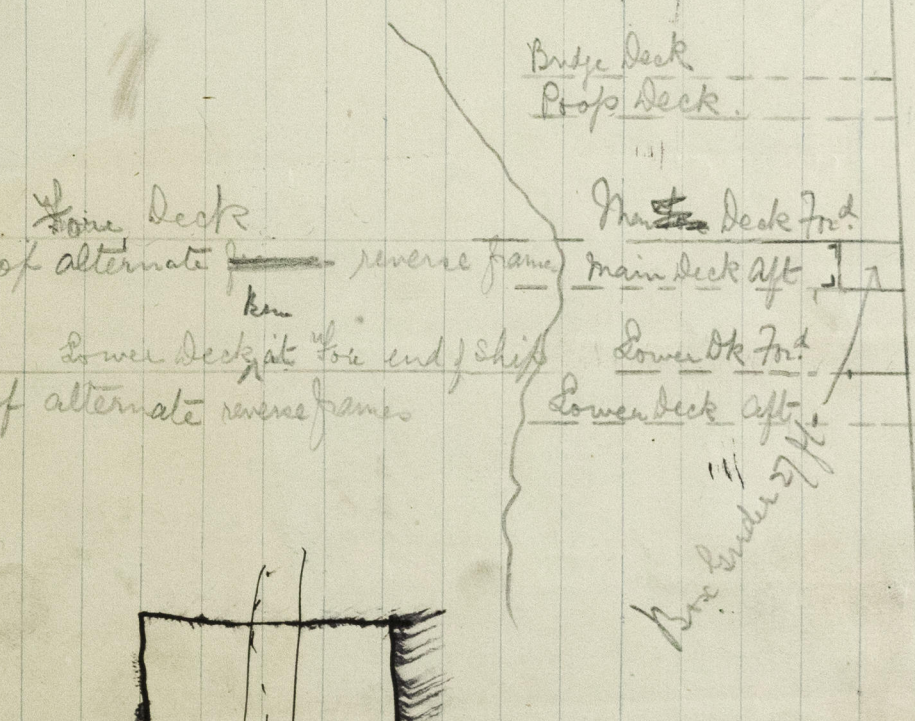 Bridge Deck
Poop Deck.
Fore Deck
Main Deck Ford
of alternate reverse frame
Main Deck Aft
Lower Deck at Fore end of Ship
Lower Dk Ford
of alternate reverse frames
Lower Deck Aft
Box Girder 27 ft.